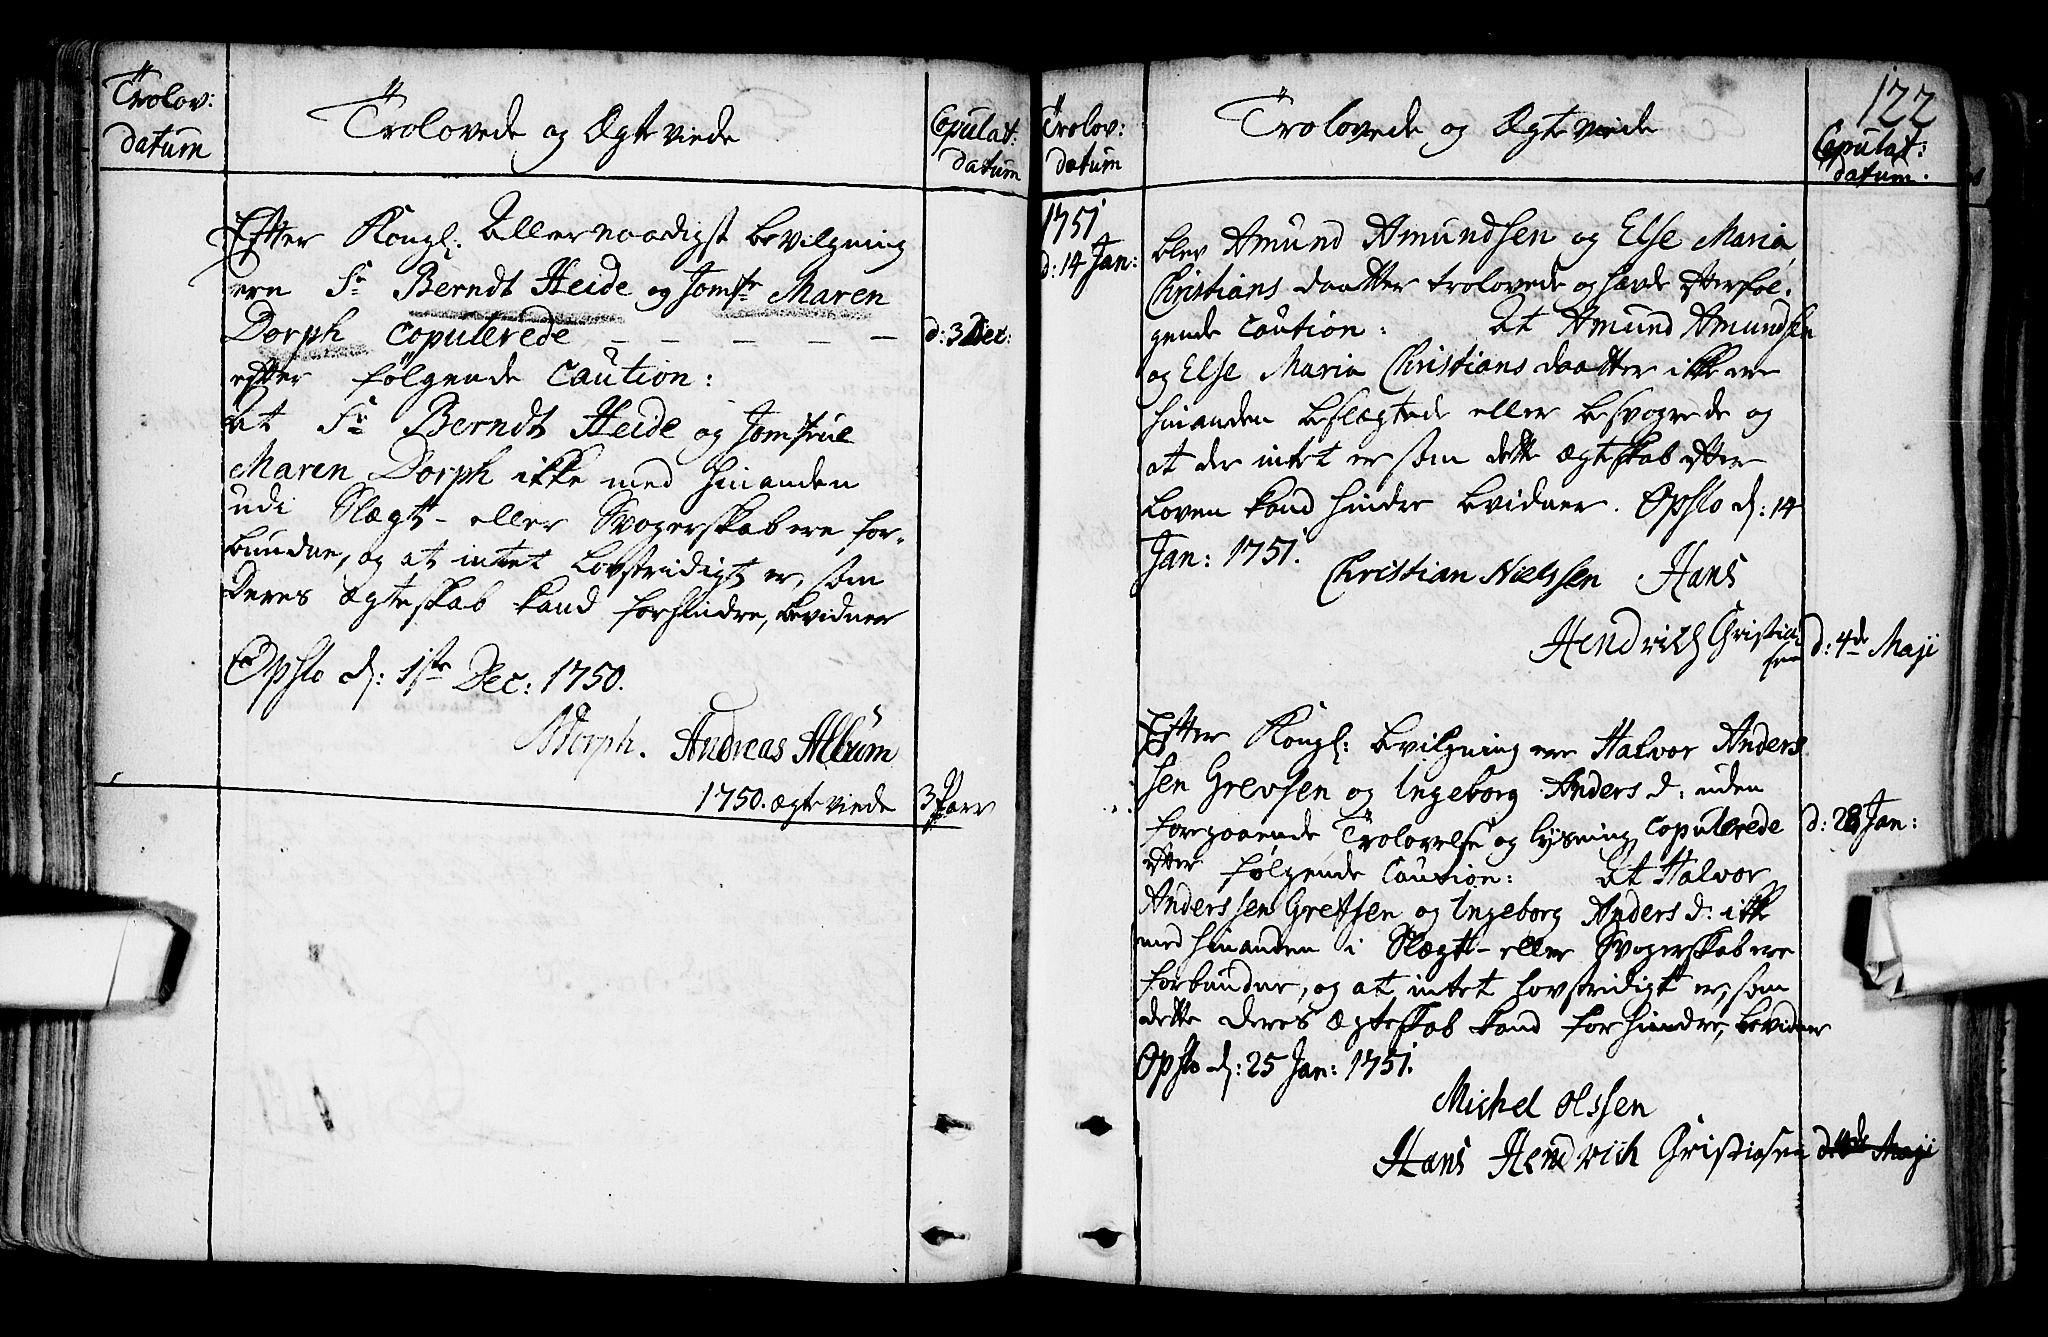 Trolov:
datum
Trolovede og Ægteviede
Copulat:
datum
Efter Kongl: Allernaadigst bevilgning
ere Sr Berndt Heide og Jomfr: Maren
Dorph copulerede — — — — — d: 3 Dec:
efter følgende Caution:
At Sr Berndt Heide og Jomfrue
Maren Dorph ikke med hinanden
udi Slægt- eller Svogerskab ere for-
bundne, og at intet Lovstridigt er, som
Deres Ægteskab kand forhindre, bevidner
Opslo d: 1ste Dec: 1750.
Dorph. Andreas Album
1750. ægteviede 3 Par
122
Trolov:
datum
Trolovede og Ægteviede
Copulat:
datum.
1751
d: 14 Jan: blev Amund Amundsen og Else Maria
Christians daatter trolovede og havde efterføl-
gende Caution: At Amund Amundsen
og Else Maria Christians daatter ikke ere
hinanden beslægtede eller besvogrede og
at der intet er som dette Ægteskab efter
Loven kand hindre bevidner. Opslo d: 14
Jan: 1751. Christian Nielssen Hans
Hendrich Christian
sen d: 4de Maji
Efter Kongl: bevilgning ere Halvor Anders
sen Grevsen og Ingeborg Anders d: uden
foregaaende Trolovelse og lysning copulerede d: 28 Jan:
efter følgende Caution: At Halvor
Anderssen Grefsen og Ingeborg Anders d: ikke
med hinanden i Slægt- eller Svogerskab ere
forbundne, og at intet lovstridigt er, som
dette deres Ægteskab kand forhindre, bevidner
Opslo d: 25 Jan: 1751.
Michel Olssen
Hans Hendrich Christiansen d: 4de Maji